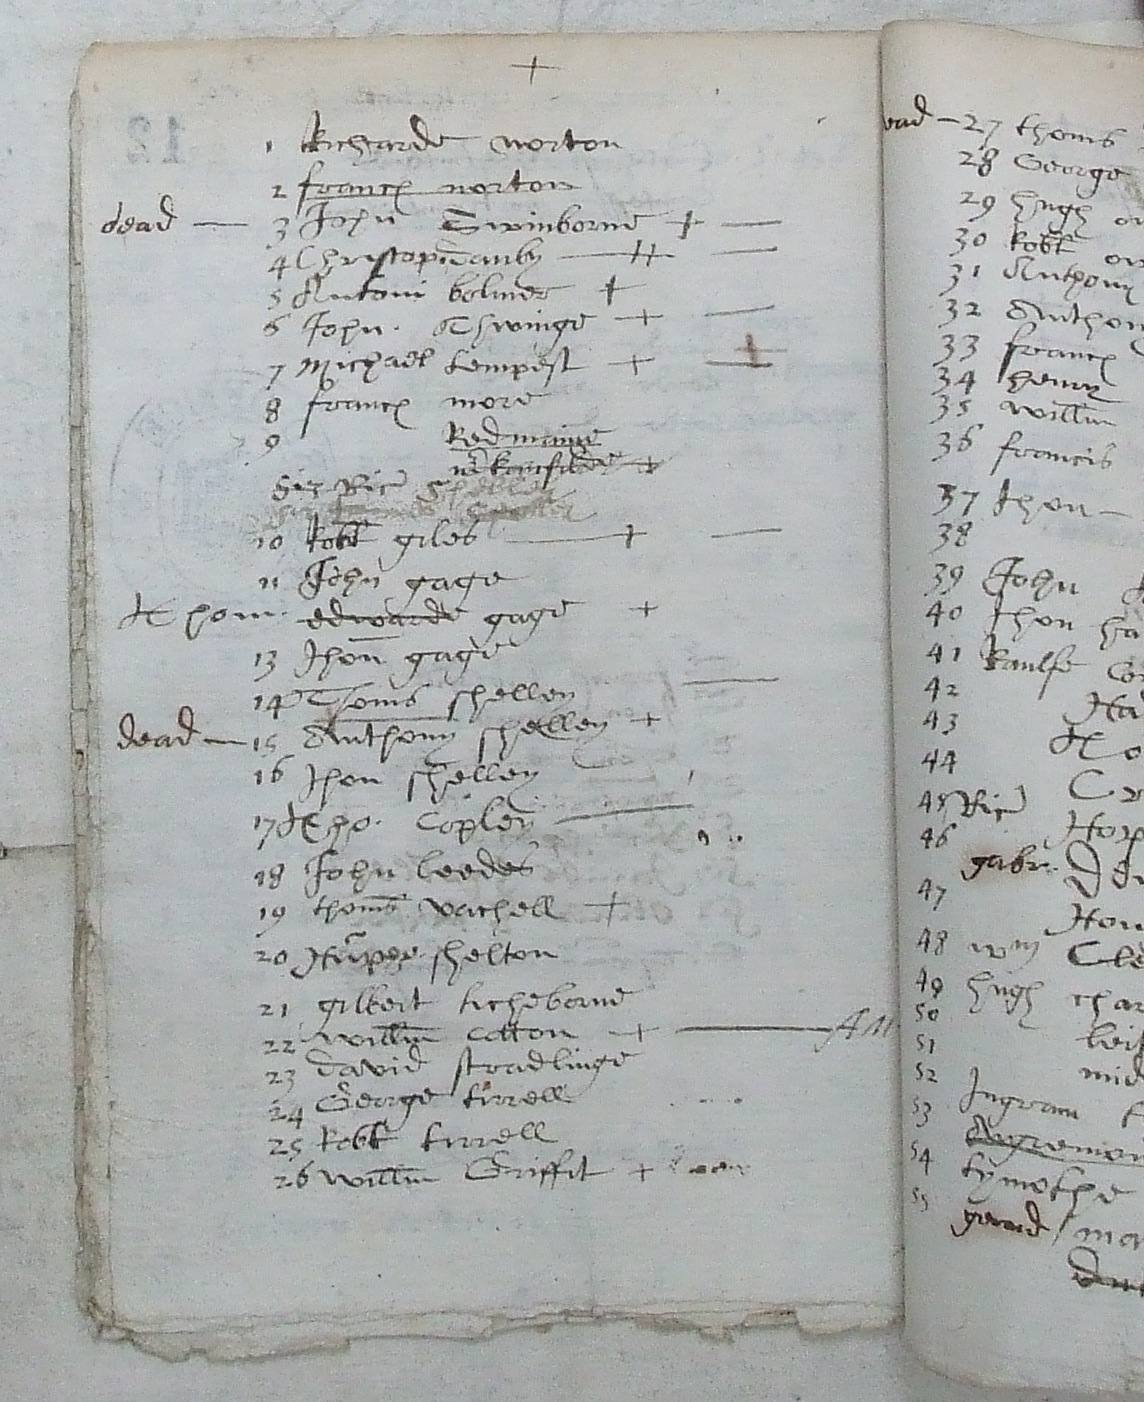 +
1 Richarde norton
2 francs norton
dead — 3 John Swinborne + —
4 Christop danby — ++ —
5 Antoni bolmer +
6 John. Thwinge + —
7 michael tempest + — +
8 francs more
9 Redmaine
Sir Ric Shelley
10 Robt giles — + —
11 John gage
Thom. edwarde gage +
13 Jhon gage
14 Thoms shelley —
dead — 15 Anthony shelley +
16 Jhon shelley
17 Tho. Copley —
18 John leedes
19 thoms vachell +
20 Humper shelton
21 gilbert ticheborne
22 willm cotton + —
23 david stradlinge
24 George tirrell
25 Robt tirrell
26 willm Griffit +
ead — 27 thoms
28 George
29 hugh
30 Robt
31 Anthony
32 Anthon
33 francs
34 henry
35 willm
36 francis
37 Jhon —
38
39 John
40 Jhon ha
41 Raulfe Co
42 Ha
43 Ho
44 Cr
45 Ric Hop
46 gabr.
47 Hou
48 wm Cle
49 hugh char
50 leis
51 mid
52 Ingram
53 Aygremon
54 tymothe
55 gerard ma